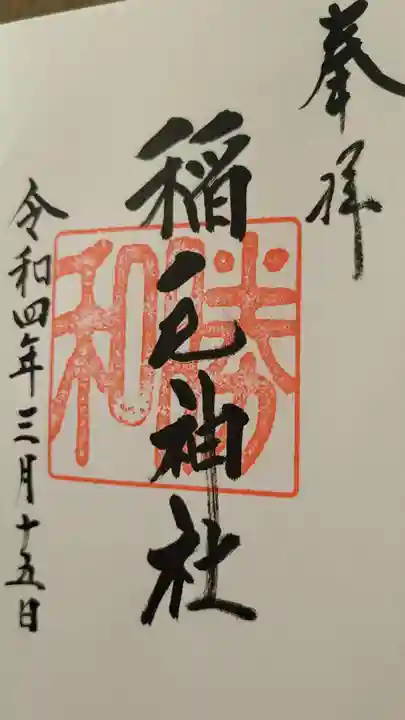 奉拝
稲毛神社
勝和
令和四年三月十五日